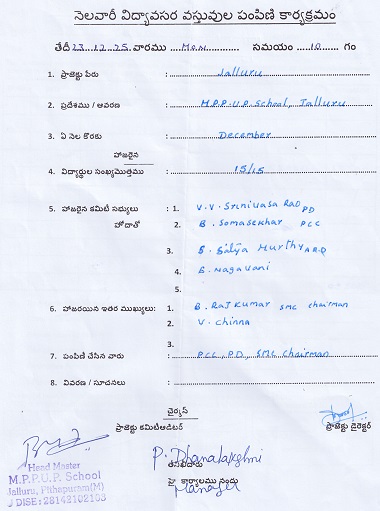 నెలవారీ విద్యావసర వస్తువుల పంపిణి కార్యక్రమం
తేదీ 23.12.25 వారము Mon సమయం 10 గం
1. ప్రాజెక్టు పేరు : Jalluru
2. ప్రదేశము / ఆవరణ : M.P.P.U.P. School, Jalluru
3. ఏ నెల కొరకు : December
హాజరైన
4. విద్యార్థుల సంఖ్య మొత్తము : 15/15
5. హాజరైన కమిటీ సభ్యులు : 1. V.V. Srinivasa Rao PD
హోదాతో 2. B. Somasekhar PCC
3. S. Satya Murthy A.R.D
4. S. Nagavani
5.
6. హాజరయిన ఇతర ముఖ్యులు: 1. B. Raj Kumar SMC chairman
2. V. Chinna
3.
7. పంపిణి చేసిన వారు : PCC, PD, SMC Chairman
8. వివరణ / సూచనలు :
చైర్మన్
ప్రాజెక్టు కమిటీఆడిటర్ ప్రాజెక్టు డైరెక్టర్
P. Dhanalakshmi
Head Master
M.P.P.U.P. School
Jalluru, Pithapuram(M)
DISE: 28142102103
తనిఖీదారు
పై కార్యాలము నందు
Manager